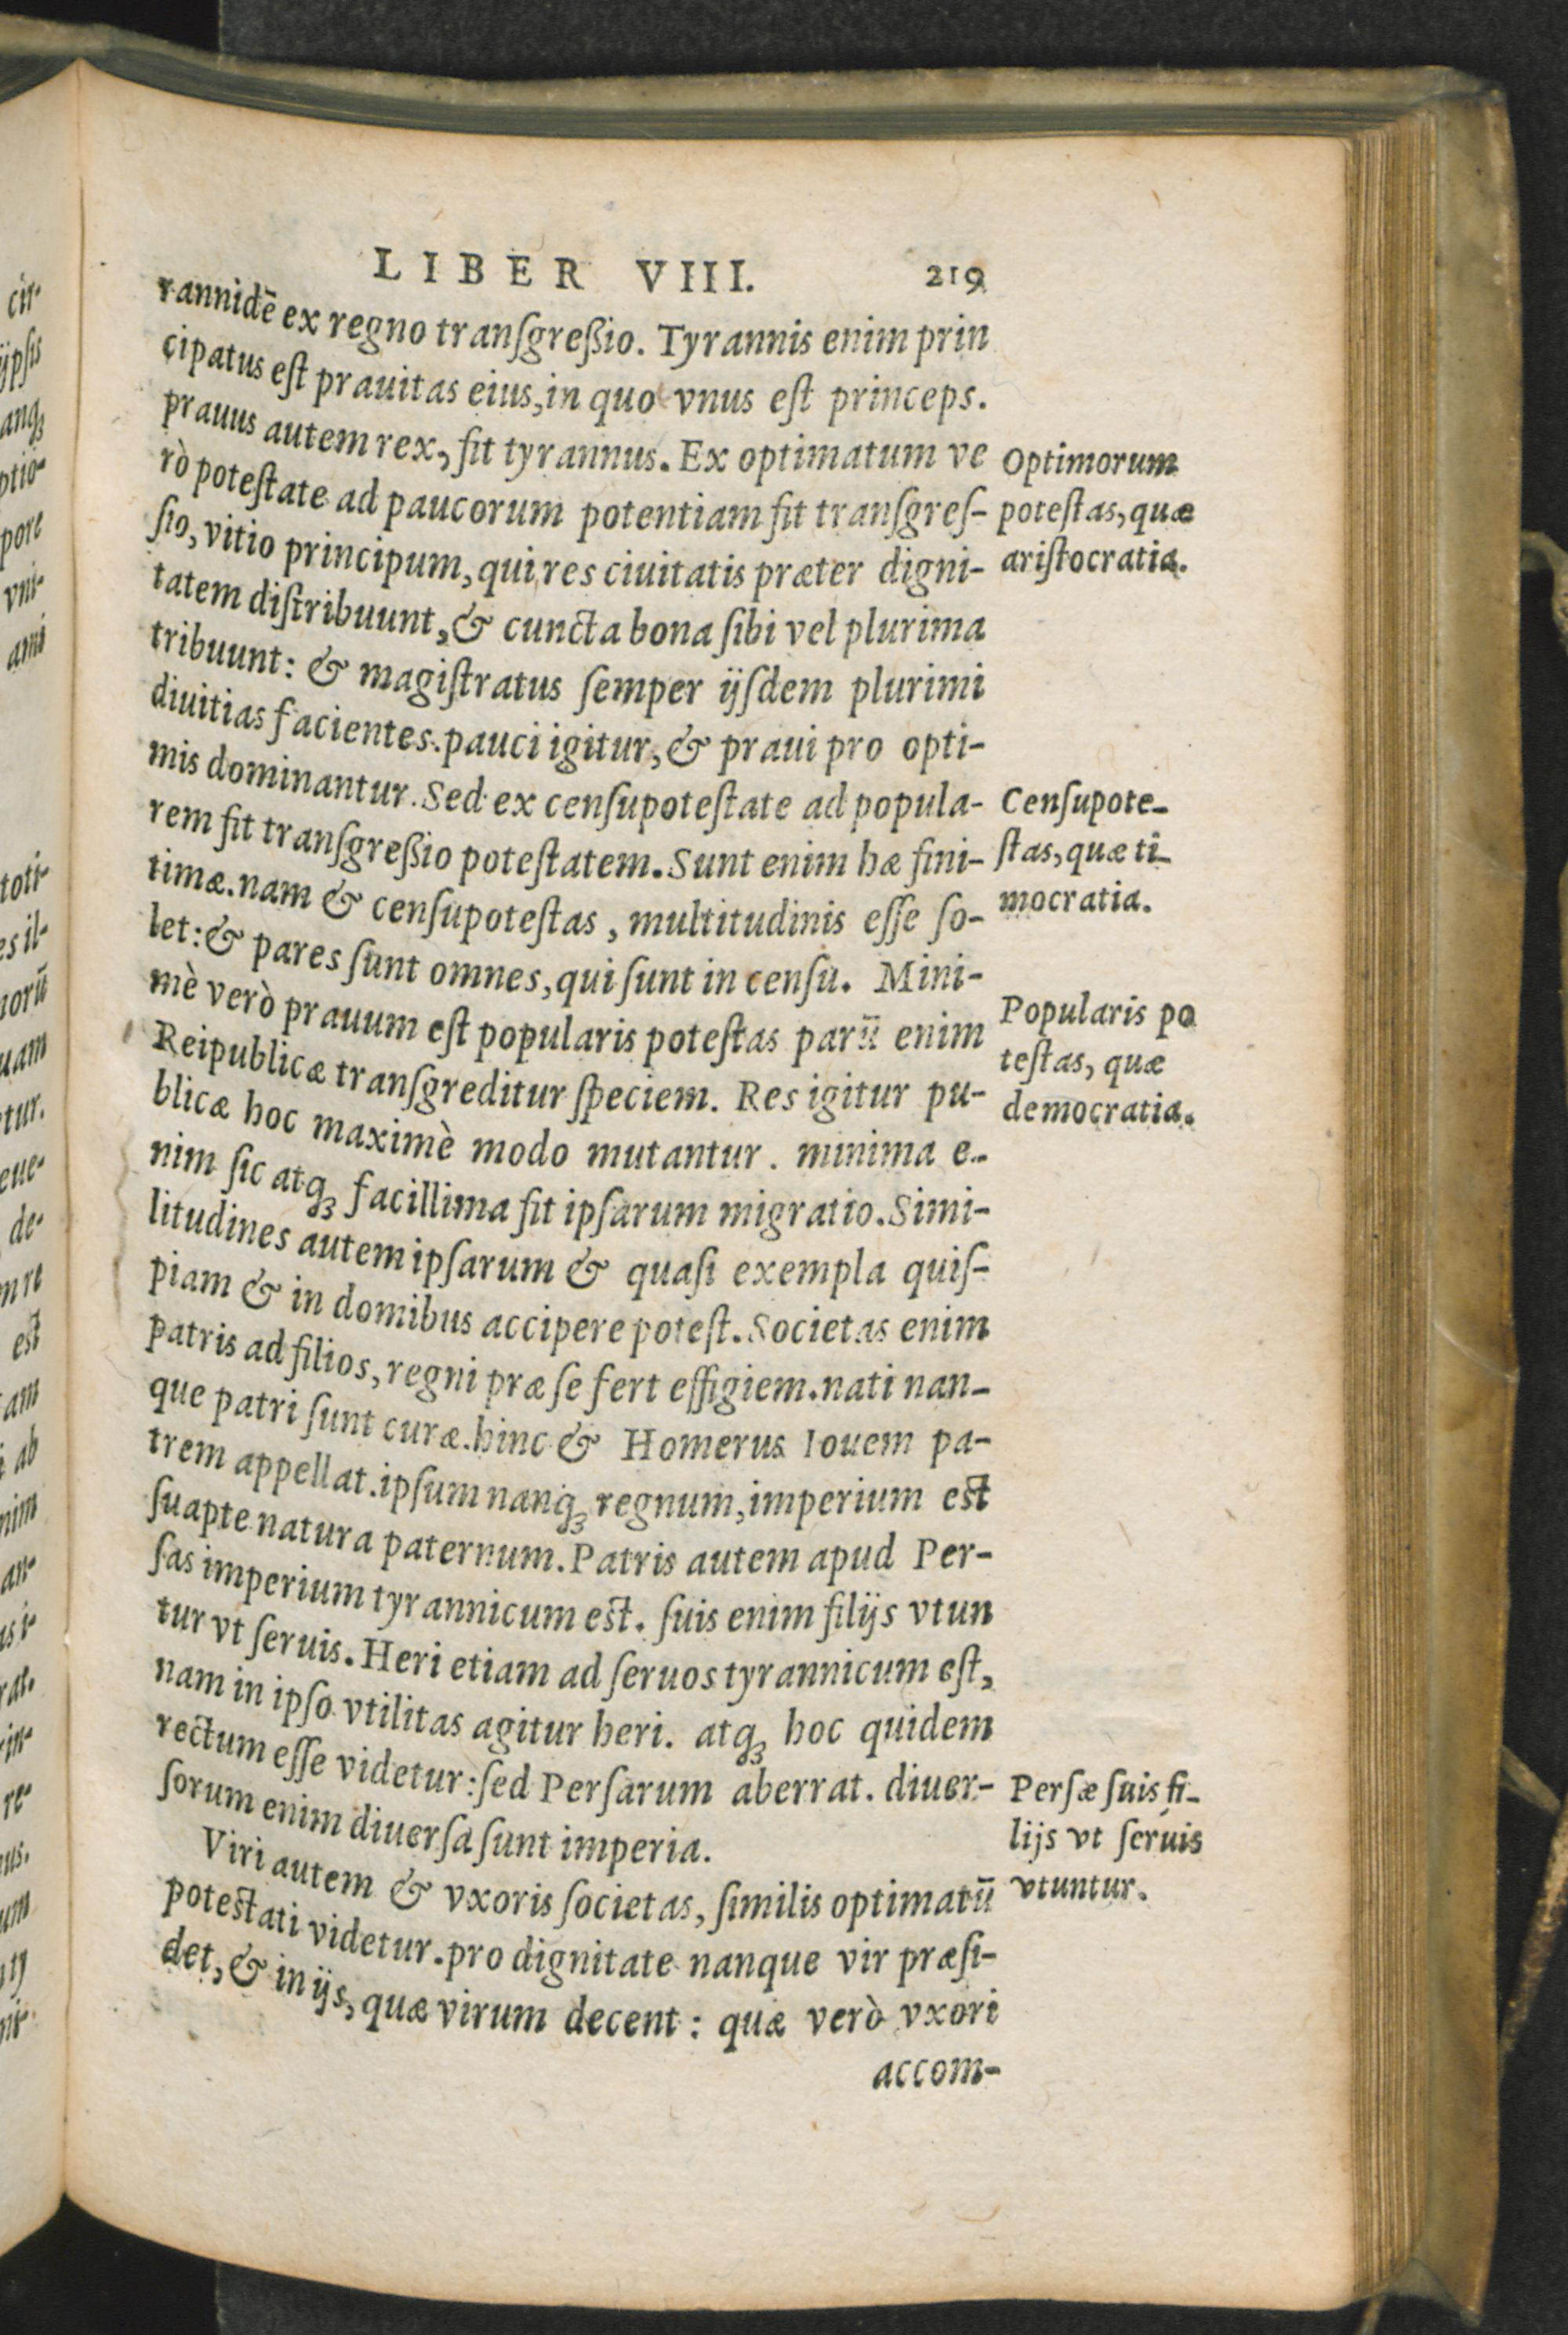 LIBER VIII. 219
rannidē ex regno tranſgreßio. Tyrannis enim prin
cipatus eſt prauitas eius, in quo vnus eſt princeps.
prauus autem rex, fit tyrannus. Ex optimatum ve
rò poteſtate ad paucorum potentiam fit tranſgreſ-
ſio, vitio principum, qui res ciuitatis præter digni-
tatem diſtribuunt, & cuncta bona ſibi vel plurima
tribuunt: & magiſtratus ſemper ijſdem plurimi
diuitias facientes. pauci igitur, & praui pro opti-
mis dominantur. Sed ex cenſupoteſtate ad popula-
rem fit tranſgreßio poteſtatem. Sunt enim hæ fini-
timæ. nam & cenſupoteſtas, multitudinis eſſe ſo-
let: & pares ſunt omnes, qui ſunt in cenſu. Mini-
mè verò prauum eſt popularis poteſtas parū enim
Reipublicæ tranſgreditur ſpeciem. Res igitur pu-
blicæ hoc maximè modo mutantur. minima e-
nim ſic atq; facillima fit ipſarum migratio. Simi-
litudines autem ipſarum & quaſi exempla quiſ-
piam & in domibus accipere poteſt. Societas enim
patris ad filios, regni præ ſe fert effigiem. nati nan-
que patri ſunt curæ. hinc & Homerus Iouem pa-
trem appellat. ipſum nanq; regnum, imperium eſt
ſuapte natura paternum. Patris autem apud Per-
ſas imperium tyrannicum eſt. ſuis enim filijs vtun
tur vt ſeruis. Heri etiam ad ſeruos tyrannicum eſt,
nam in ipſo vtilitas agitur heri. atq; hoc quidem
rectum eſſe videtur: ſed Perſarum aberrat. diuer-
ſorum enim diuerſa ſunt imperia.
Viri autem & vxoris ſocietas, ſimilis optimatū
poteſtati videtur. pro dignitate nanque vir præſi-
det, & in ijs, quæ virum decent: quæ verò vxori
accom-
Optimorum
poteſtas, quæ
ariſtocratia.
Cenſupote-
ſtas, quæ ti-
mocratia.
Popularis po
teſtas, quæ
democratia.
Perſæ ſuis fi-
lijs vt ſeruis
vtuntur.